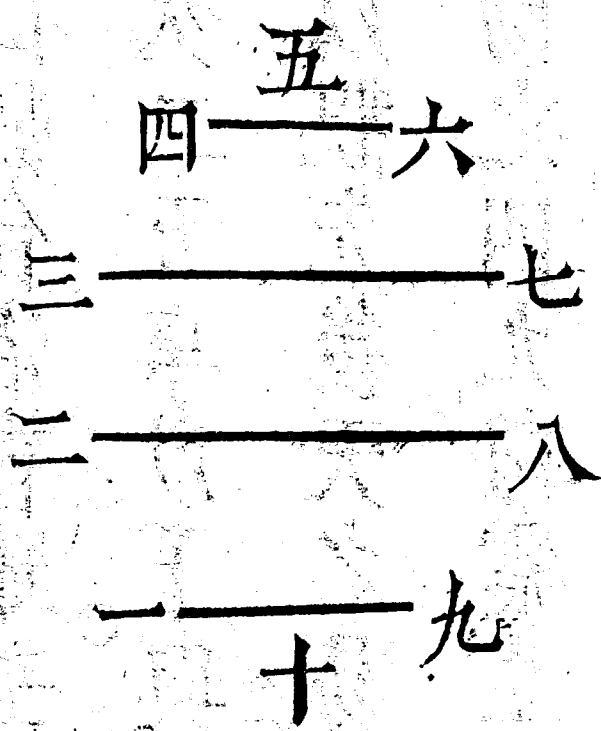 五
四 六
三 七
二 八
一 九
十